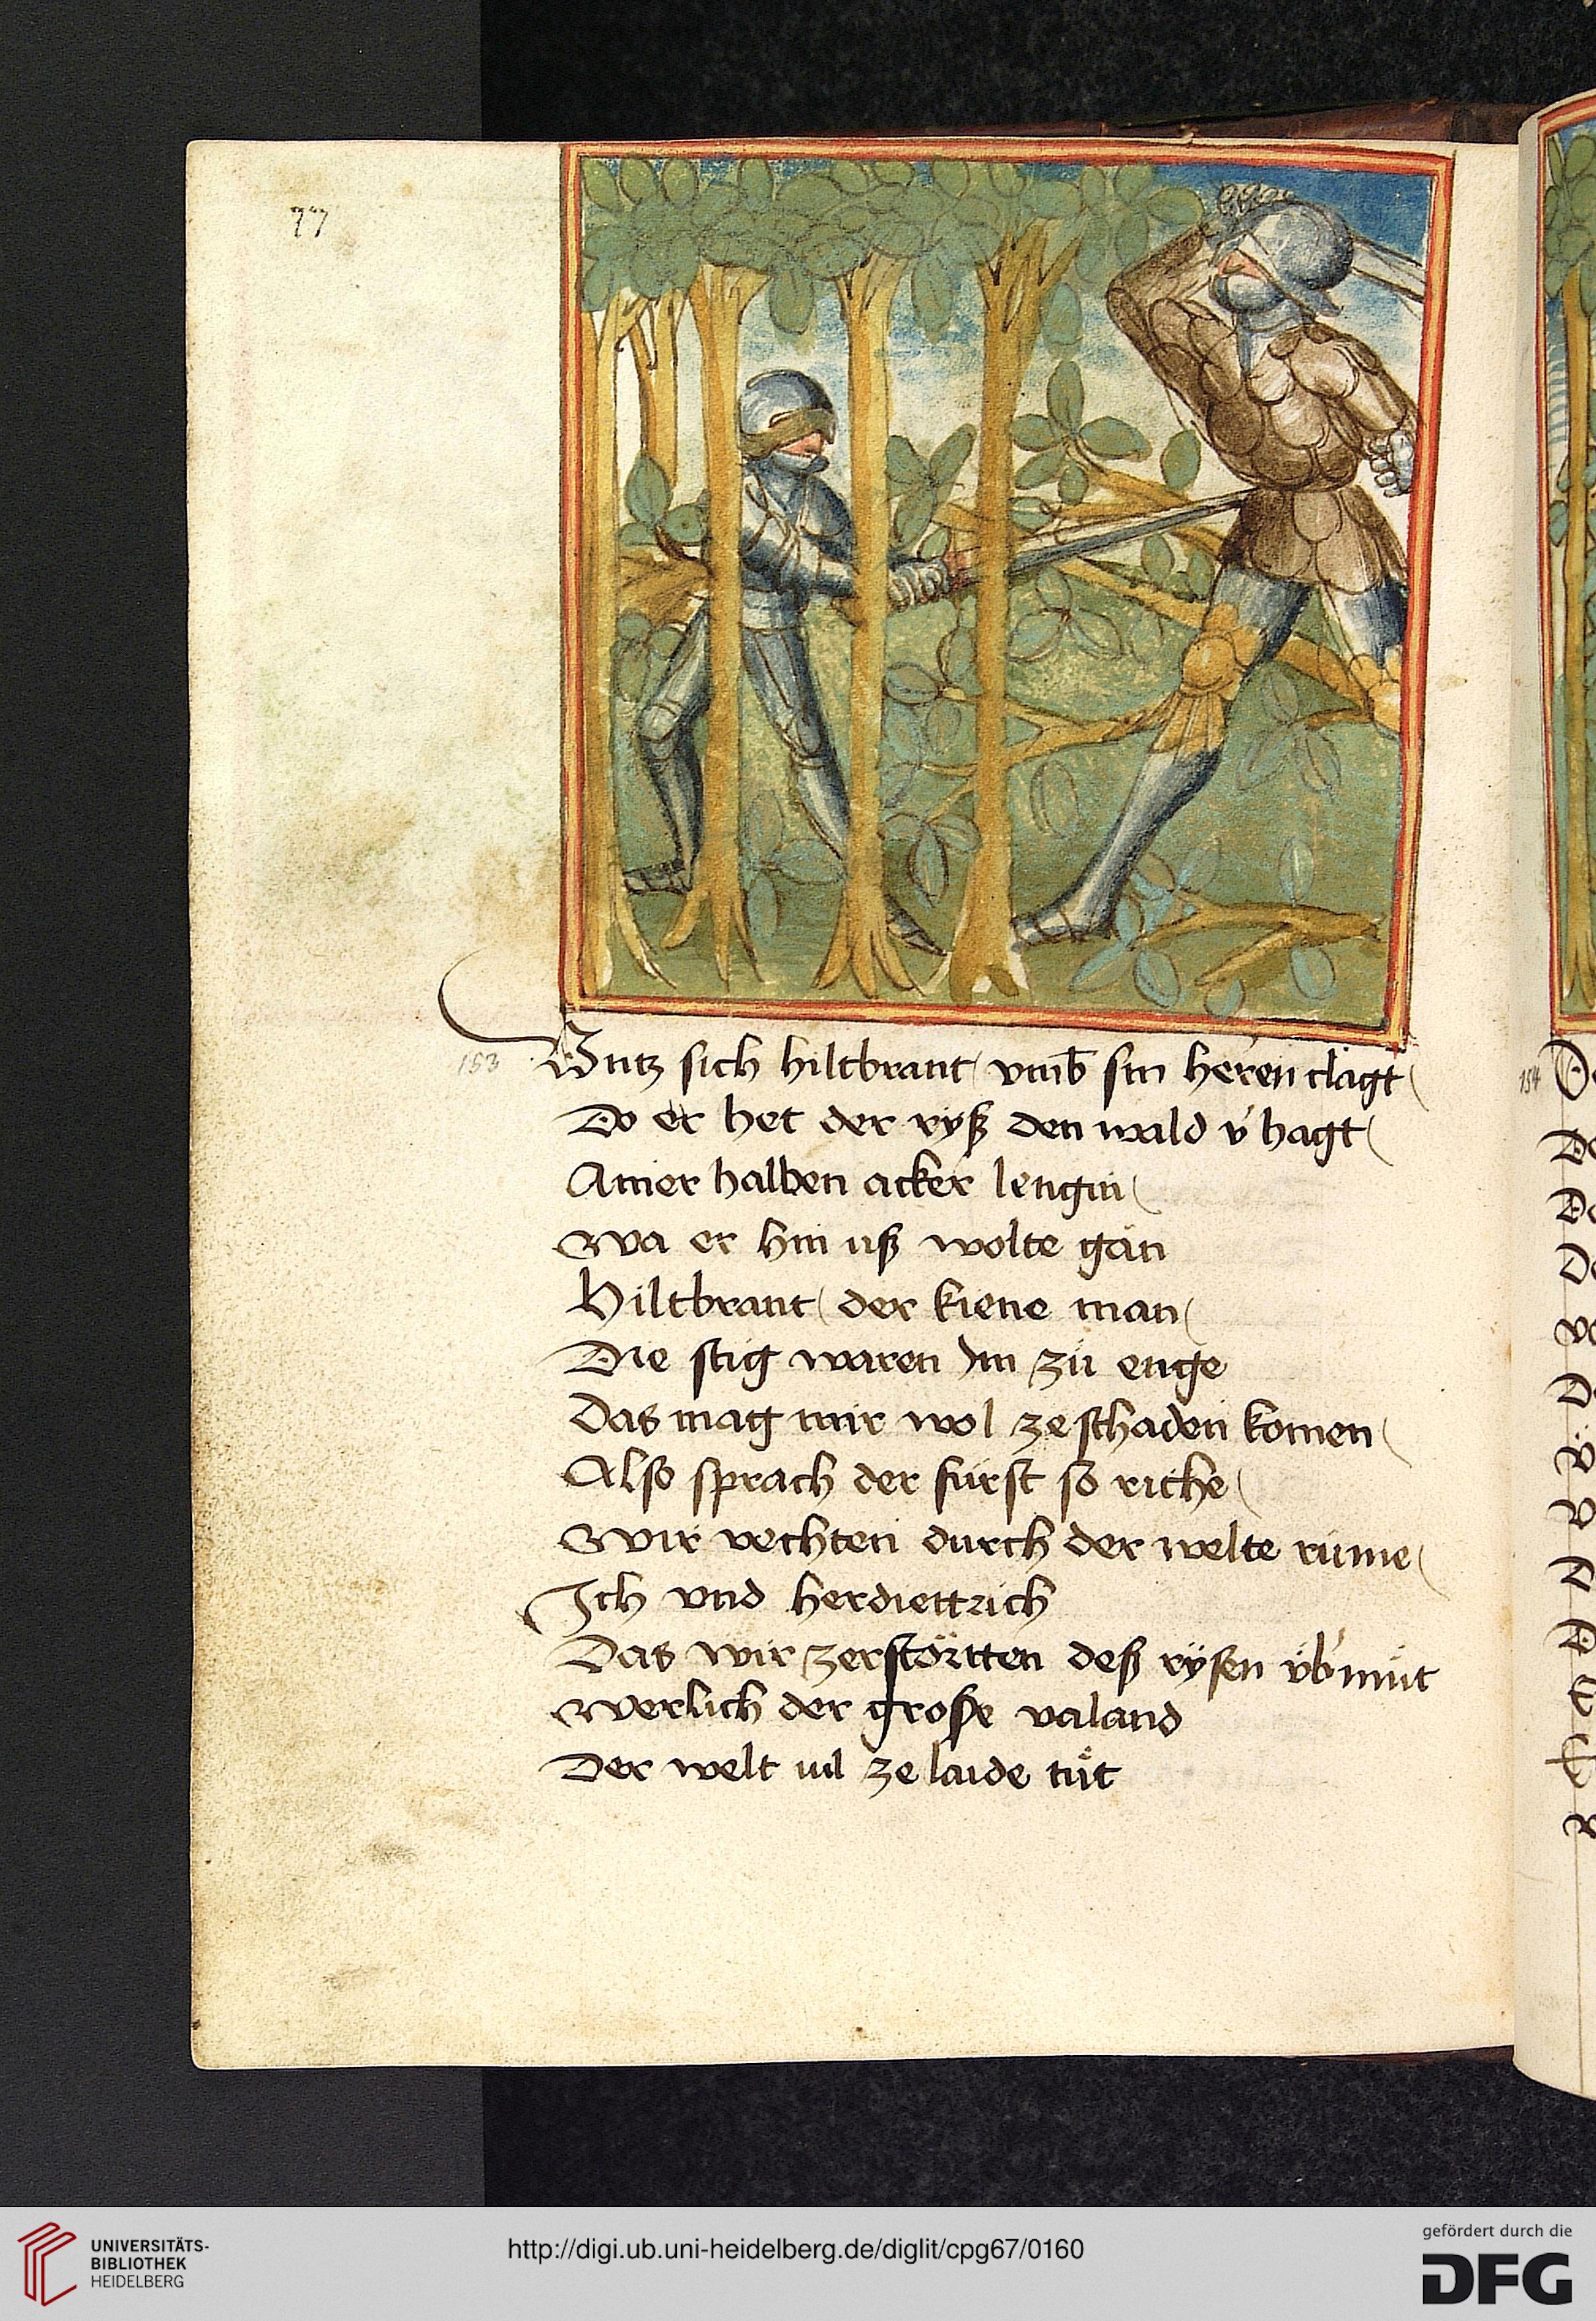 77
153 Untz sich hiltbrant vmb̄ sin heren clagt
Do er het der ryß den wald v̕hagt
Ainer halben acker lengin
Wa er hin uß wolte gän
Hiltbrant der kiene man
Die stig waren Im zü enge
Das mag mir wol ze schaden komen
Also sprach der fürst so riche
Wir vechten durch der welte rume
Ich vnd herdiettrich
Das wir zerstörtten deß rÿsen v̈b̕müt
Werlich der große valand
Der welt vil ze laide tüt
154
UNIVERSITÄTS-
BIBLIOTHEK
HEIDELBERG
http://digi.ub.uni-heidelberg.de/diglit/cpg67/0160
gefördert durch die
DFG